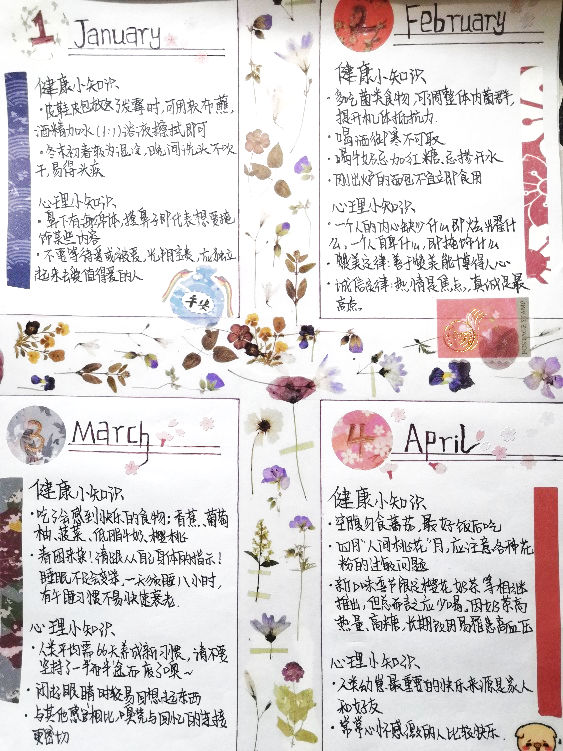 1 January
健康小知识
·皮鞋皮包放久了发霉时,可用软布蘸,
酒精加水(1:1)溶液擦拭即可
·冬末初春较为湿冷,晚间洗头不吹
干,易得头疾
心理小知识
·鼻下有海绵体,摸鼻子即代表想要掩
饰某些内容
·不要等待着或被爱,先相信美,应独立
起来去做值得爱的人
平安
2 February
健康小知识
·多吃菌类食物,可调整体内菌群,
提升机体抵抗力.
·喝酒御寒不可取
·喝牛奶忌加红糖,忌掺开水
·刚出炉的面包不宜立即食用
心理小知识
·一个人的内心缺少什么即炫耀什
么,一个人自卑什么,即掩饰什么
·赞美定律:善于赞美能博得人心
·诚信定律:热情是焦点,真诚是最
高点。
POSTAGE STAMP
3 March
健康小知识
·吃了会感到快乐的食物:香蕉、葡萄
柚、菠菜、低脂牛奶、樱桃
·春困来袭!请跟从自己身体的指示!
睡眠不足会变笨,一天须睡八小时,
有午睡习惯不易快速衰老.
心理小知识
·人类平均需66天养成新习惯,请不要
坚持了一半而半途而废了噢~
·闭上眼睛时较易回想起东西
·与其他感官相比,嗅觉与回忆的连接
更密切
4 April
健康小知识
·空腹勿食蕃茄,最好饭后吃
·四月"人间桃花"月,应注意各种花
粉的过敏问题
·新口味季节限定樱花奶茶等相继
推出,但总而言之应少喝,因奶茶高
热量、高糖,长期饮用易罹患高血压
心理小知识
·人类幼崽最重要的快乐来源是家人
和好友
·常常心怀感激的人比较快乐.